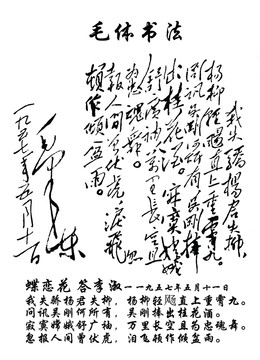 毛体书法
我失骄杨君失柳，
杨柳轻飏直上重霄九。
问讯吴刚何所有，吴刚捧
出桂花酒。寂寞嫦娥
舒广袖，万里长空且
为忠魂舞。忽
报人间曾伏虎，泪飞
顿作倾盆雨。
毛泽东
一九五七年五月十一日
蝶恋花 答李淑一 一九五七年五月十一日
我失骄杨君失柳，杨柳轻飏直上重霄九。
问讯吴刚何所有，吴刚捧出桂花酒。
寂寞嫦娥舒广袖，万里长空且为忠魂舞。
忽报人间曾伏虎，泪飞顿作倾盆雨。